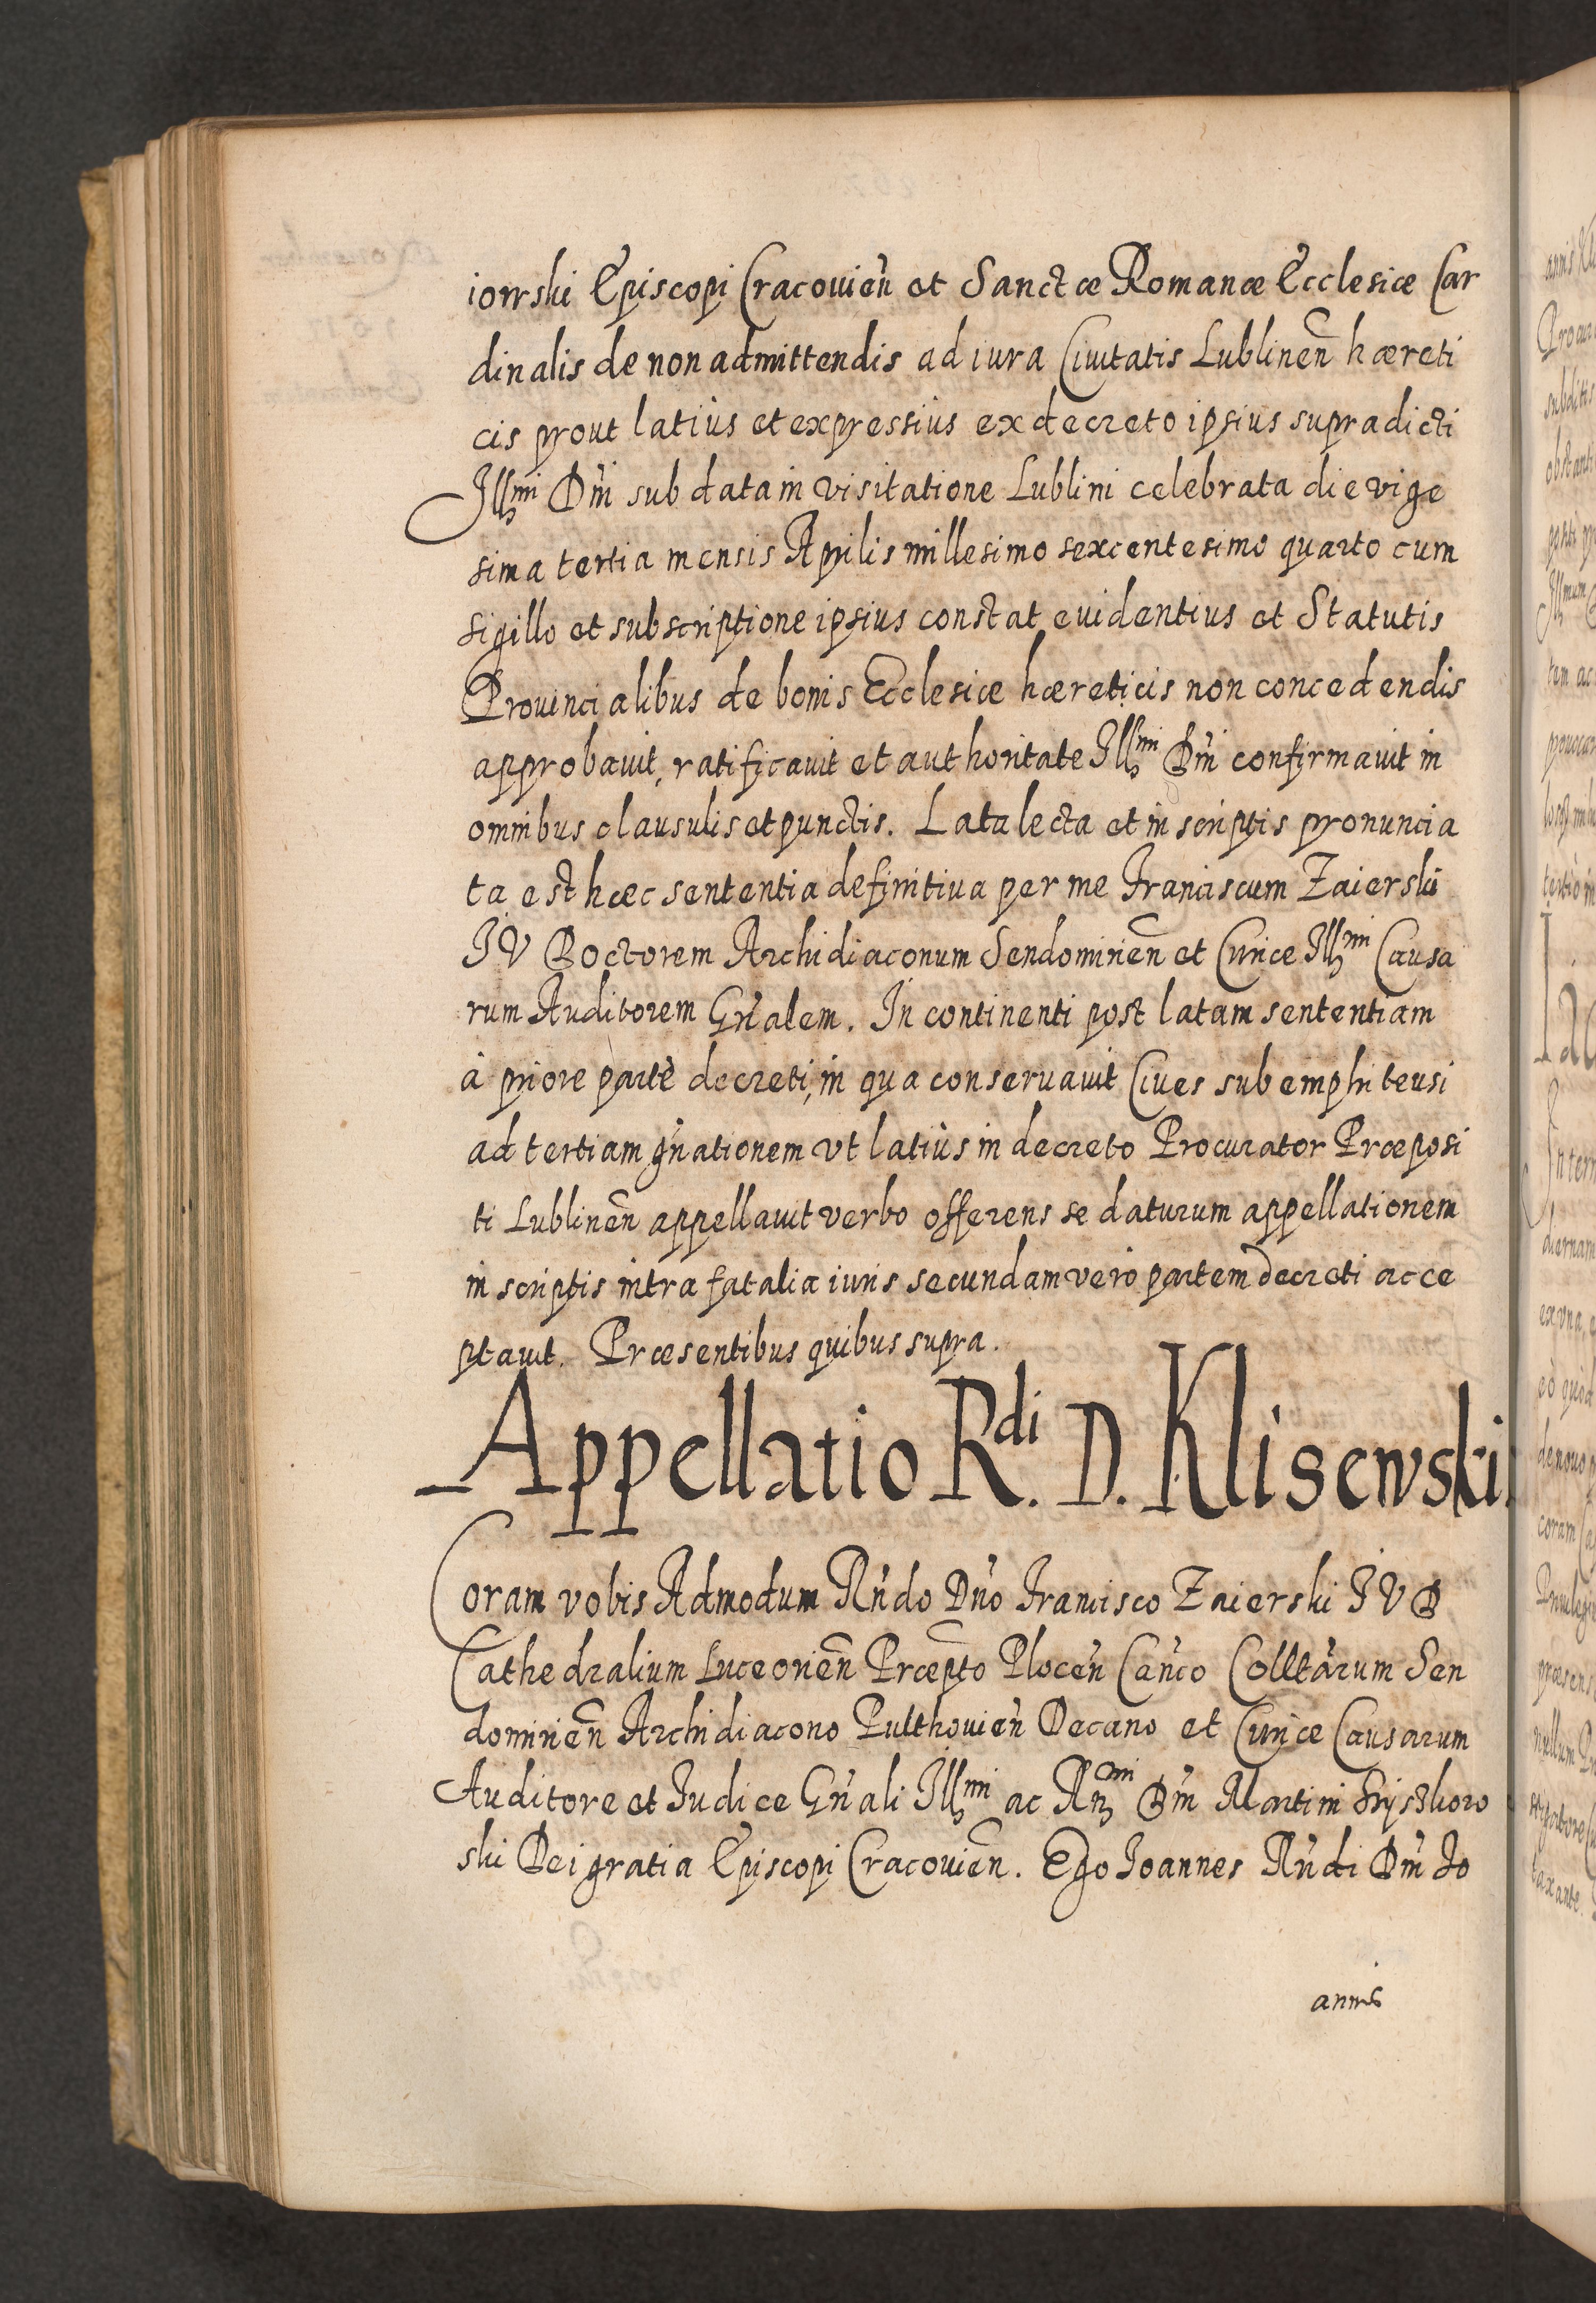 iowski Episcopi Cracouien̄ et Sanctæ Romanæ Ecclesiæ Car
dinalis de non admittendis ad iura Ciuitatis Lublinen̄ hæreti
cis prout latiùs et expressiùs ex decreto ipsius supradicti
Illmi Dn̄i sub data in visitatione Lublini celebrata die vige
sima tertia mensis Aprilis millesimo sexcentesimo quarto cum
sigillo et subscriptione ipsius constat euidentius et Statutis
Prouincialibus de bonis Ecclesiæ hæreticis non concedendis
approbauit, ratificauit et authoritate Illmi Dn̄i confirmauit in
omnibus clausulis et punctis. Lata lecta et in scriptis pronuncia
ta est hæc sententia definitiua per me Franciscum Zaierski
I V Doctorem Archidiaconum Sendomirien̄ et Curiæ Illmi Causa
rum Auditorem Gn̄alem. In continenti post latam sententiam
à priore parte decreti, in qua conseruauit Ciues sub emphiteusi
ad tertiam gn̄ationem vt latiùs in decreto Procurator Præposi
ti Lublinen̄ appellauit verbo offerens se daturum appellationem
in scriptis intra fatalia iuris secundam verò partem decreti acce
ptauit. Præsentibus quibus supra.
Appellatio Rdi. D. Klisewski.
Coram vobis Admodum Rn̄do Dn̄o Francisco Zaierski I V D
Cathedralium Luceorien̄ Præpto Plocen̄ Can̄co Colltārum Sen
domirien̄ Archidiacono Pulthouien̄ Decano et Curiæ Causarum
Auditore et Iudice Gn̄ali Illmi ac Rmi Dn̄i Martini Szyszkow
ski Dei gratia Episcopi Cracouien̄. Ego Ioannes Rn̄di Dn̄i Io
annis